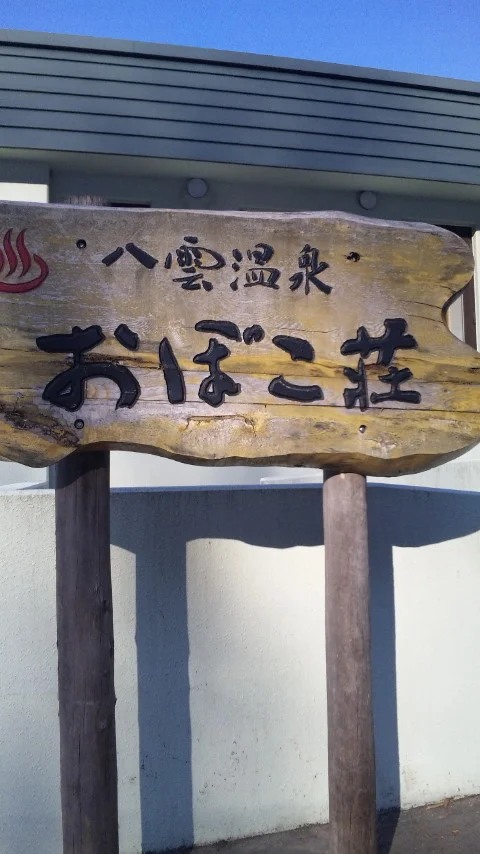 八雲温泉
おぼこ荘